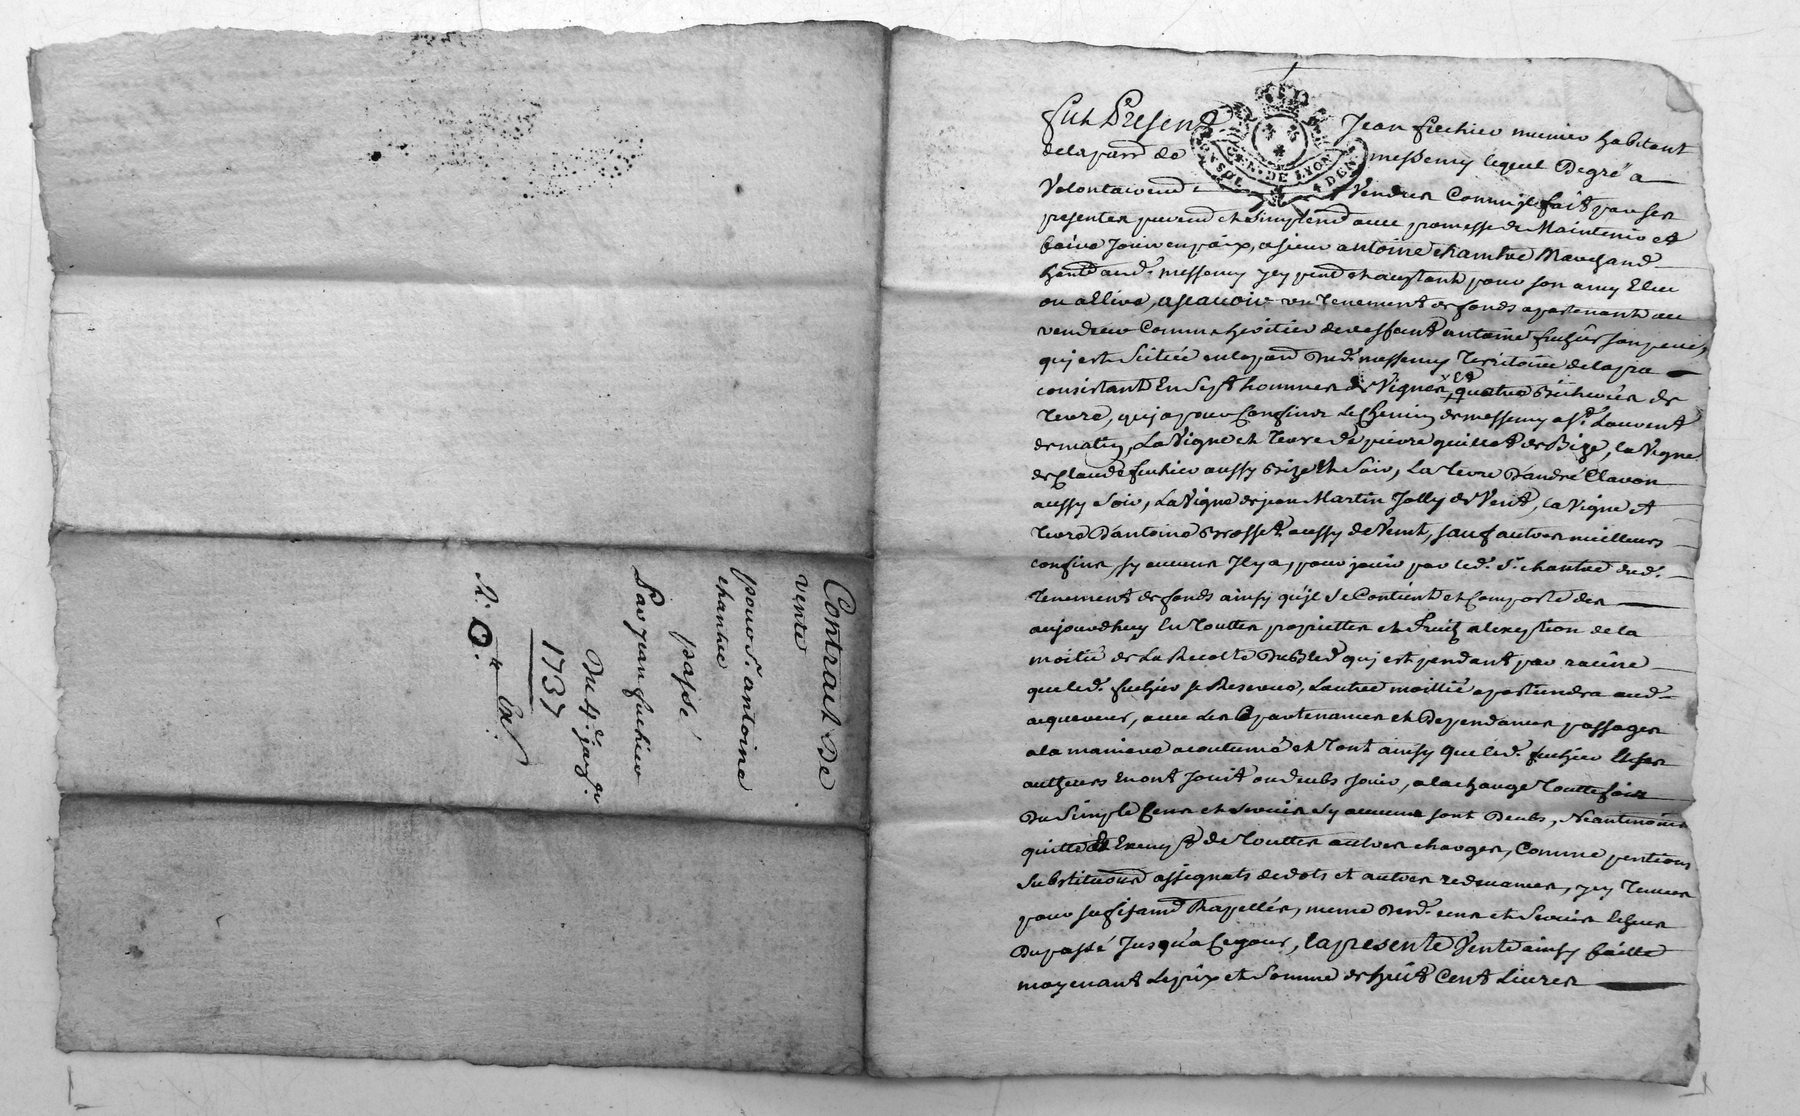 Contrait De
vente
pour Sr. antoine
chantre
passé
Par Jean fuchier
Du 4e. janvr.
1737
fut Present Jean fuchier munier habitant
de la parr de messemy lequel De gré a
Volontairemt Vendu Comme Il fait par ses
presentes puremt et simplemt avec promesse de Maintenir et
faire Jouir en paix, a sieur antoine chantre Marchand
habt aud. messemy Icy pnt et aceptant pour son amy Eleu
ou a Elire, ascavoir un Tenement de fonds apartenant au
vendeur Comme heritier de deffunt antoine fuchier son pere,
qui est Scitué en la parr Dud. messemy Teritoire de la pra
consistant En Sept hommes de Vignes, et quatre Bicherées de
Terre, qui a pour Confins Le Chemin de messemy a St. Laurent
de matin, La Vigne et Terre de pierre guillot de Bize, la Vigne
de Claude fuchier aussy Bize Et Soir, La Terre D'andré Clavon
aussy Soir, La Vigne de jean Martin Jolly de Vent, la Vigne et
Terre D'antoine Brosset aussy de Vent, sauf autres meilleurs
confins, sy aucuns Il y a, pour jouir par led. Sr. chantre dud.
Tenement de fonds ainsy qu'jl se Contient et Comporte des
aujourdhuy En Touttes proprietés et Fruitz a l'exeption de la
moitié de La Recolte Du Bled qui est pendant par racine
que led. fuchier se Reserve, L'autre moittié apartiendra aud.
acquereur, avec Les apartenances et Dependances passages
a la maniere acoutumé et Tout ainsy que led. fuchier Et ses
autheurs En ont Jouit ou deubs Jouir, a la charge Touttefois
Du Simple Cens et servis sy aucuns sont Deubs, Neantmoins
quitte et Exempt de Touttes autres charges, Comme pentions
Substitutions assignats de dots et autres redevances, Icy Tenues
pour sufisamt Rapellés, meme Desd. cens et servis Echeus
Du passé Jusqu'a Ce jour, la presente Vente ainsy faitte
moyenant Le prix et Somme de huit Cent Livres